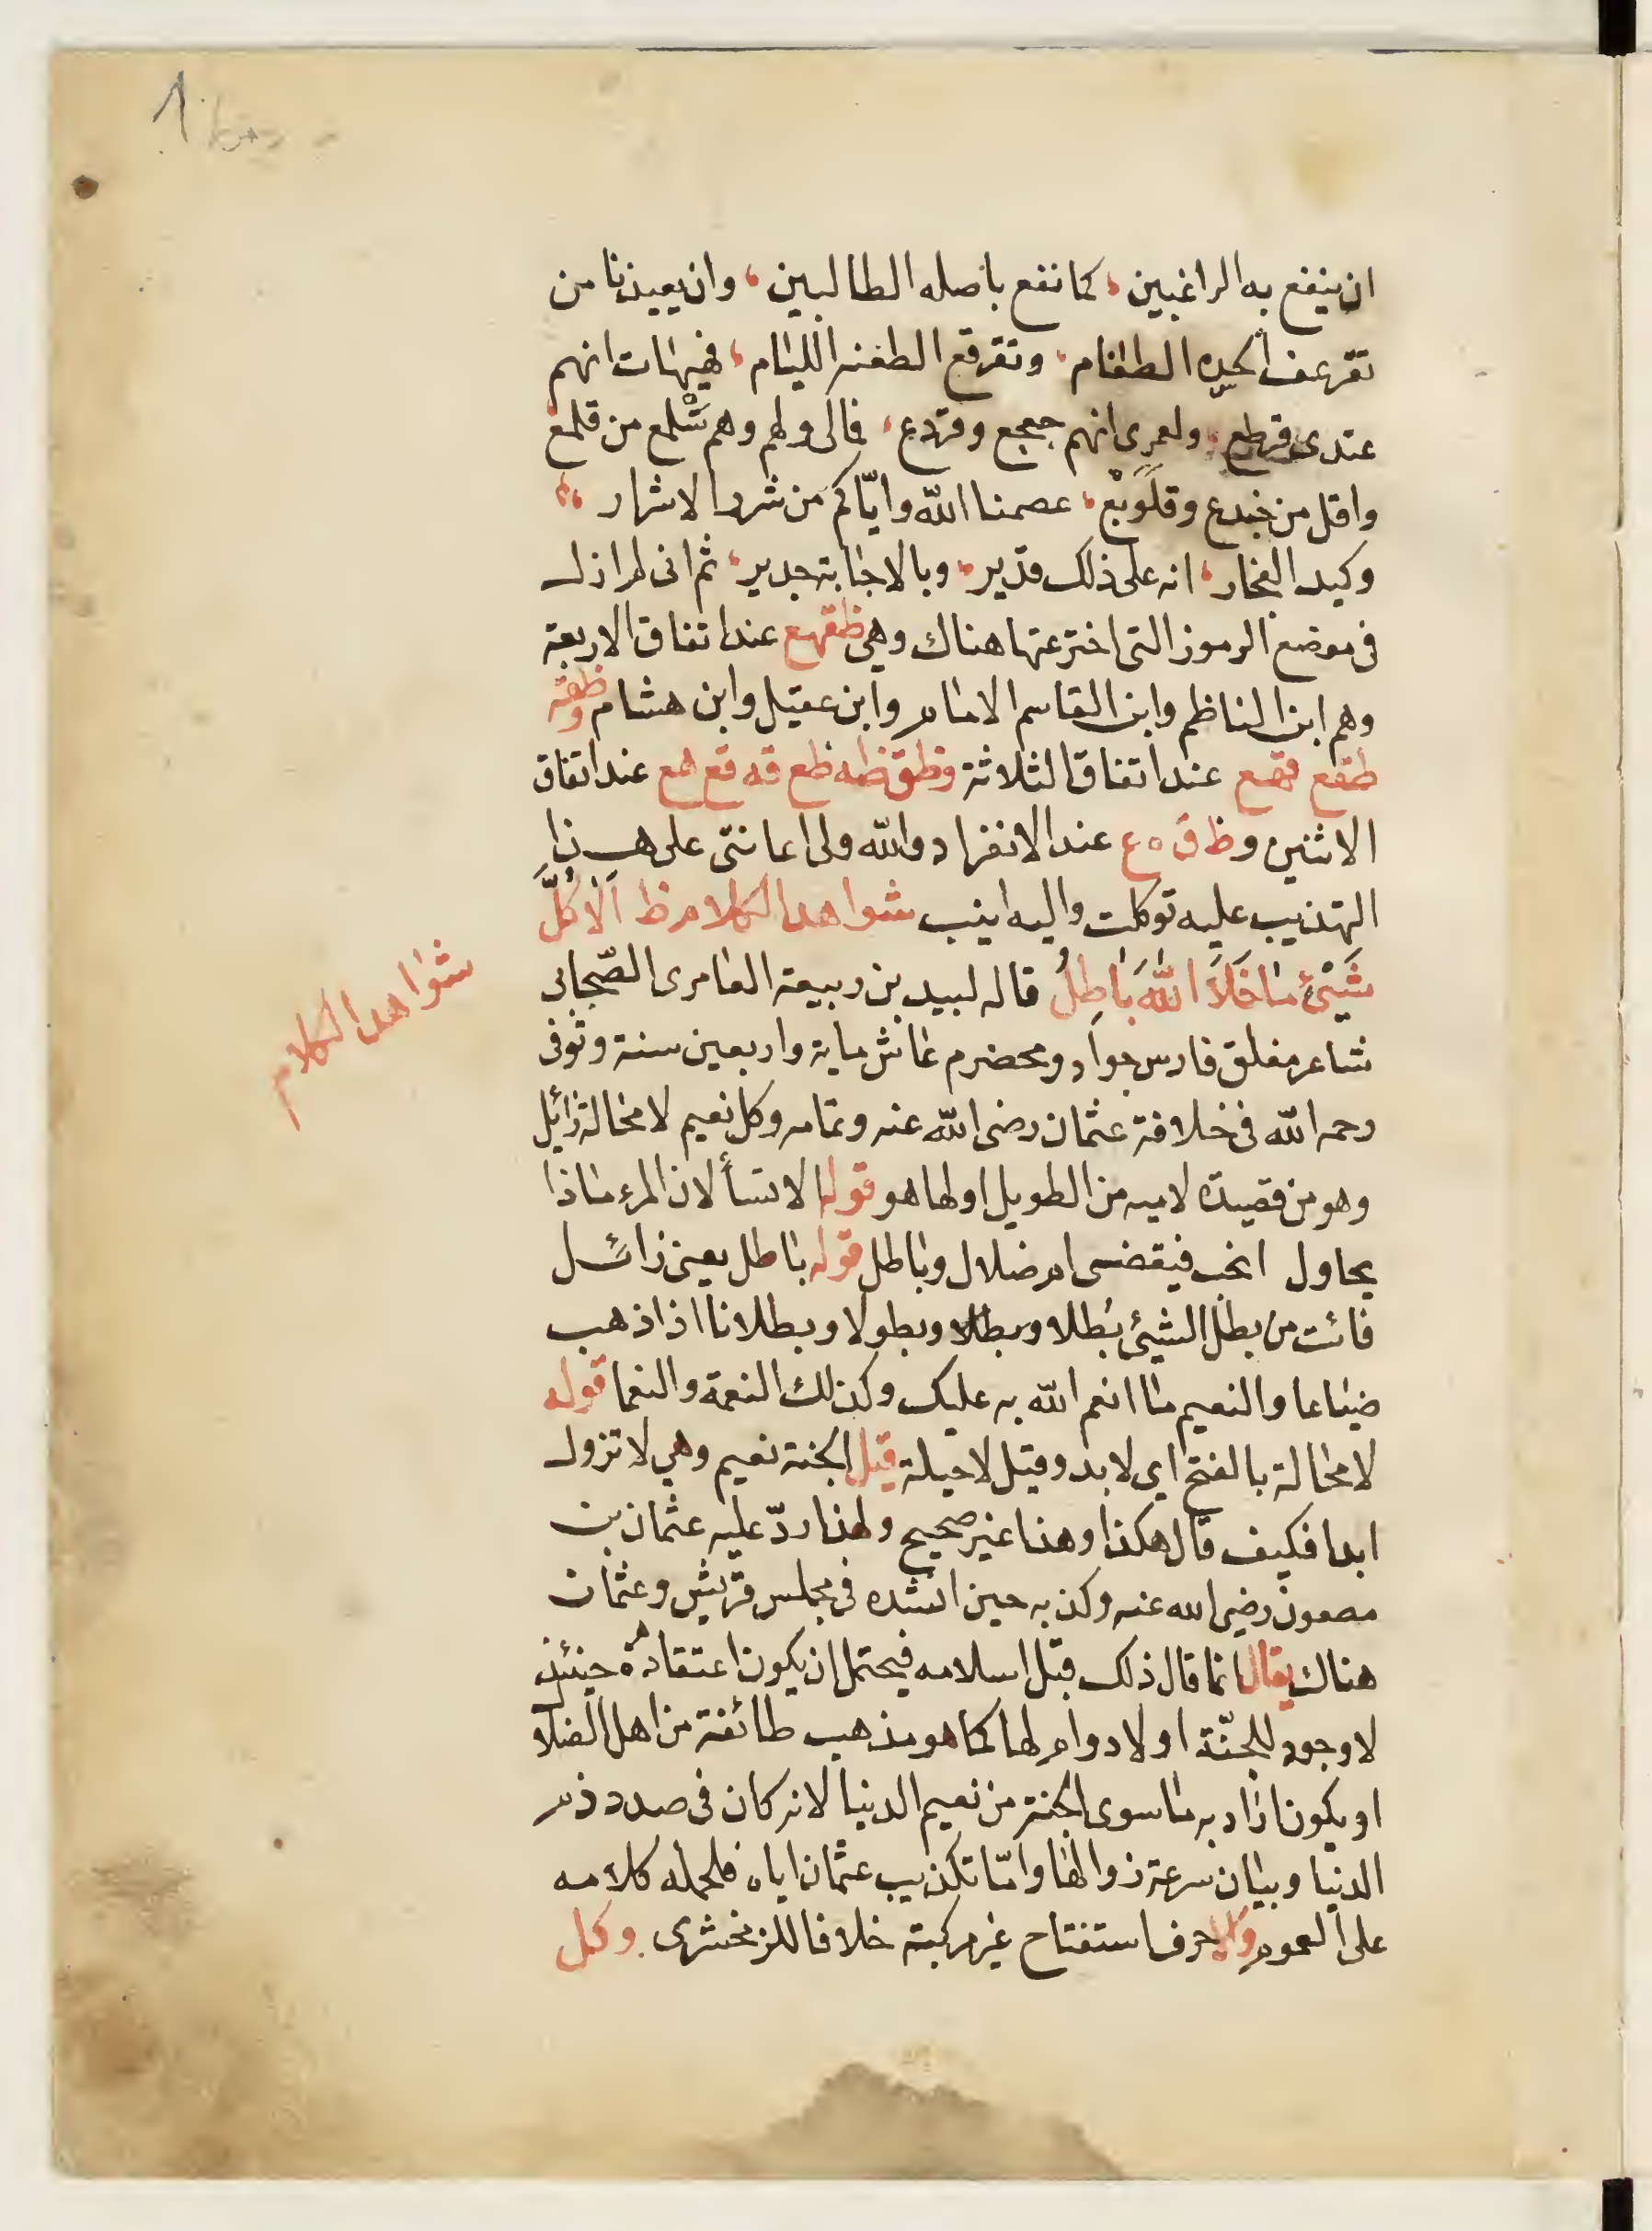 ان ينفع به الراغبين، كما نفع باصله الطالبين، وان يعيذنا من
تقرعف الطغام، وتفرقع الطغنه الليام، فهيهات انهم
عندى قرطع، ولعمرى انهم جعجع وقردع، فمالى ولهم وهم شلمع من قلمع
واقل من خندع وقلوبع، عصمنا الله واياكم من شرر الاشرار،
وكيد الفجار، انه على ذلك قدير، وبالاجابة جدير، ثم انى لم ازل
فى موضع الرموز التى اخترعتها هناك وهى ظقهع عند اتفاق الاربعة
وهم ابن الناظم وابن القاسم الامام وابن عقيل وابن هشام وظقه
ظقع قهع عند اتفاق الثلاثة وظق ظه ظع قه قع هع عند اتفاق
الاثنين وظ ق ه ع عند الانفراد والله ولى اعانتى على هذا
التهذيب عليه توكلت واليه انيب شواهد الكلام ظ اَلَا كُلُّ
شَيْئٍ مَا خَلَا اللهَ بَاطِلُ قاله لبيد بن ربيعة العامرى الصّحابى
شاعر مفلق فارس جواد ومخضرم عاش ماية واربعين سنة وتوفى
رحمه الله فى خلافة عثمان رضى الله عنه وتمامه وكل نعيم لا محالة زائل
وهو من قصيدة لاميه من الطويل اولها هو قوله الا تسألان المرء ماذا
يحاول انحب فيقضى ام ضلال وباطل قوله باطل يعنى زائل
فائت من بطل الشيئ بطلا وبطلا وبطولا وبطلانا اذا ذهب
ضياعا والنعيم ما انعم الله به عليك وكذلك النعمة والنعما قوله
لا محالة بالفتح اي لا بد وقيل لا حيلة قيل الجنة نعيم وهي لا تزول
ابدا فكيف قال هكذا وهذا غير صحيح ولهذا ردّ عليه عثمان بن
مصعون رضي الله عنه وكذ به حين انشده فى مجلس قريش وعثمان
هناك يقال انما قال ذلك قبل اسلامه فيحتمل ان يكون اعتقاده حينئذ
لا وجود للجنّة او لا دوام لها كما هو مذهب طائفة من اهل الضلا
او يكون اراد به ما سوى الجنة من نعيم الدنيا لانه كان فى صدد ذم
الدنيا وبيان سرعة زوالها وامّا تكذيب عثمان اياه فلحمله كلامه
على العموم والا حرف استفتاح غير مركبة خلافا للزمخشرى وكل
شواهد الكلام